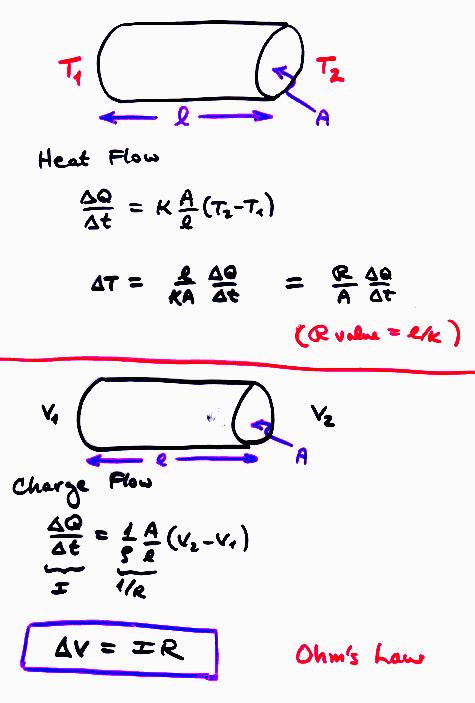 T₁ T₂
l A
Heat Flow
ΔQ/Δt = K A/l (T₂-T₁)
ΔT = l/KA ΔQ/Δt = R/A ΔQ/Δt
(R value = l/K)
V₁ V₂
l A
Charge Flow
ΔQ/Δt = 1/ρ A/l (V₂-V₁)
I 1/R
ΔV = IR Ohm's Law